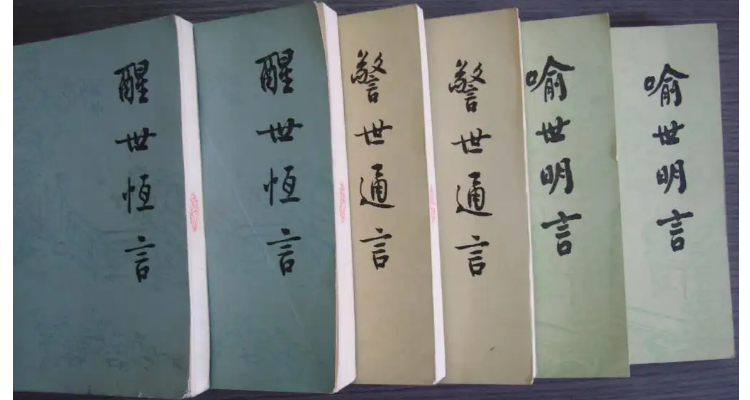 醒世恆言
醒世恆言
警世通言
警世通言
喻世明言
喻世明言